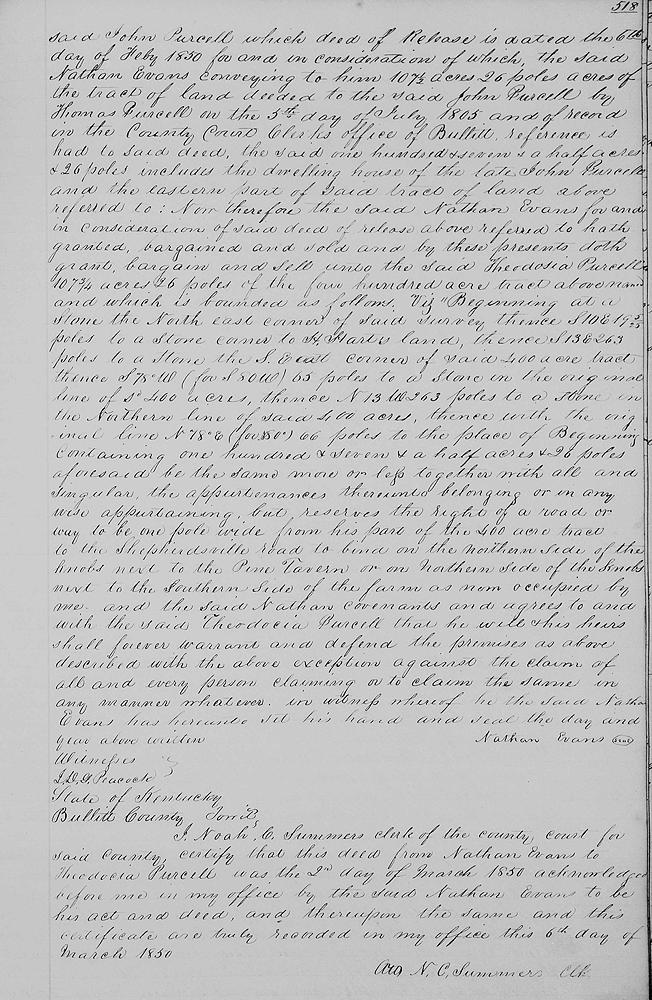 518
said John Purcell which deed of Release is dated the 6th
day of Feby 1850 for and in consideration of which, the said
Nathan Evans conveying to him 107½ acres 26 poles acres of
the tract of land deeded to the said John Purcell by
Thomas Purcell on the 5th day of July 1805 and of record
in the County Court Clerks office of Bullitt, reference is
had to said deed, the said one hundred & seven & a half acres
& 26 poles includes the dwelling house of the late John Purcell
and the eastern part of said tract of land above
referred to: Now therefore the said Nathan Evans for and
in consideration of said deed of release above referred to hath
granted, bargained and sold and by these presents doth
grant, bargain and sell unto the said Theodosia Purcell
107¾ acres 26 poles of the four hundred acre tract above named
and which is bounded as follows, Viz "Beginning at a
Stone the North east corner of said survey thence S10E 19
poles to a Stone corner to H. Harts land, thence S13E 263
poles to a Stone the S. East corner of said 400 acre tract
thence S 78° W (for S 80 W) 65 poles to a Stone in the original
line of sd 400 acres, thence N 13 W 263 poles to a stone in
the Northern line of said 400 acres, thence with the orig
inal line N 78° E (for 80°) 66 poles to the place of Beginning
Containing one hundred & seven & a half acres & 26 poles
aforesaid be the same more or less together with all and
singular, the appurtenances thereunto belonging or in any
wise appurtaining, but reserves the right of a road or
way to be one pole wide from his part of the 400 acre tract
to the Shepherdsville road to bind on the northern side of the
knobs next to the Pine Tavern or on Northern side of the knobs
next to the Southern side of the farm as now occupied by
me. and the said Nathan covenants and agrees to and
with the said Theodocia Purcell that he will & his heirs
shall forever warrant and defend the premises as above
described with the above exception against the claim of
all and every person claiming or to claim the same in
any manner whatever. in witness whereof he the said Nathan
Evans has hereunto set his hand and seal the day and
year above written Nathan Evans seal
Witnesses
Peacock
State of Kentucky
Bullitt County
I, Noah. C. Summers clerk of the county, court for
said County, certify that this deed from Nathan Evans to
Theodocia Purcell was the 2nd day of March 1850 acknowledged
before me in my office by the said Nathan Evans to be
his act and deed, and thereupon the same and this
certificate are truly recorded in my office this 6th day of
March 1850
N. C. Summers Clk